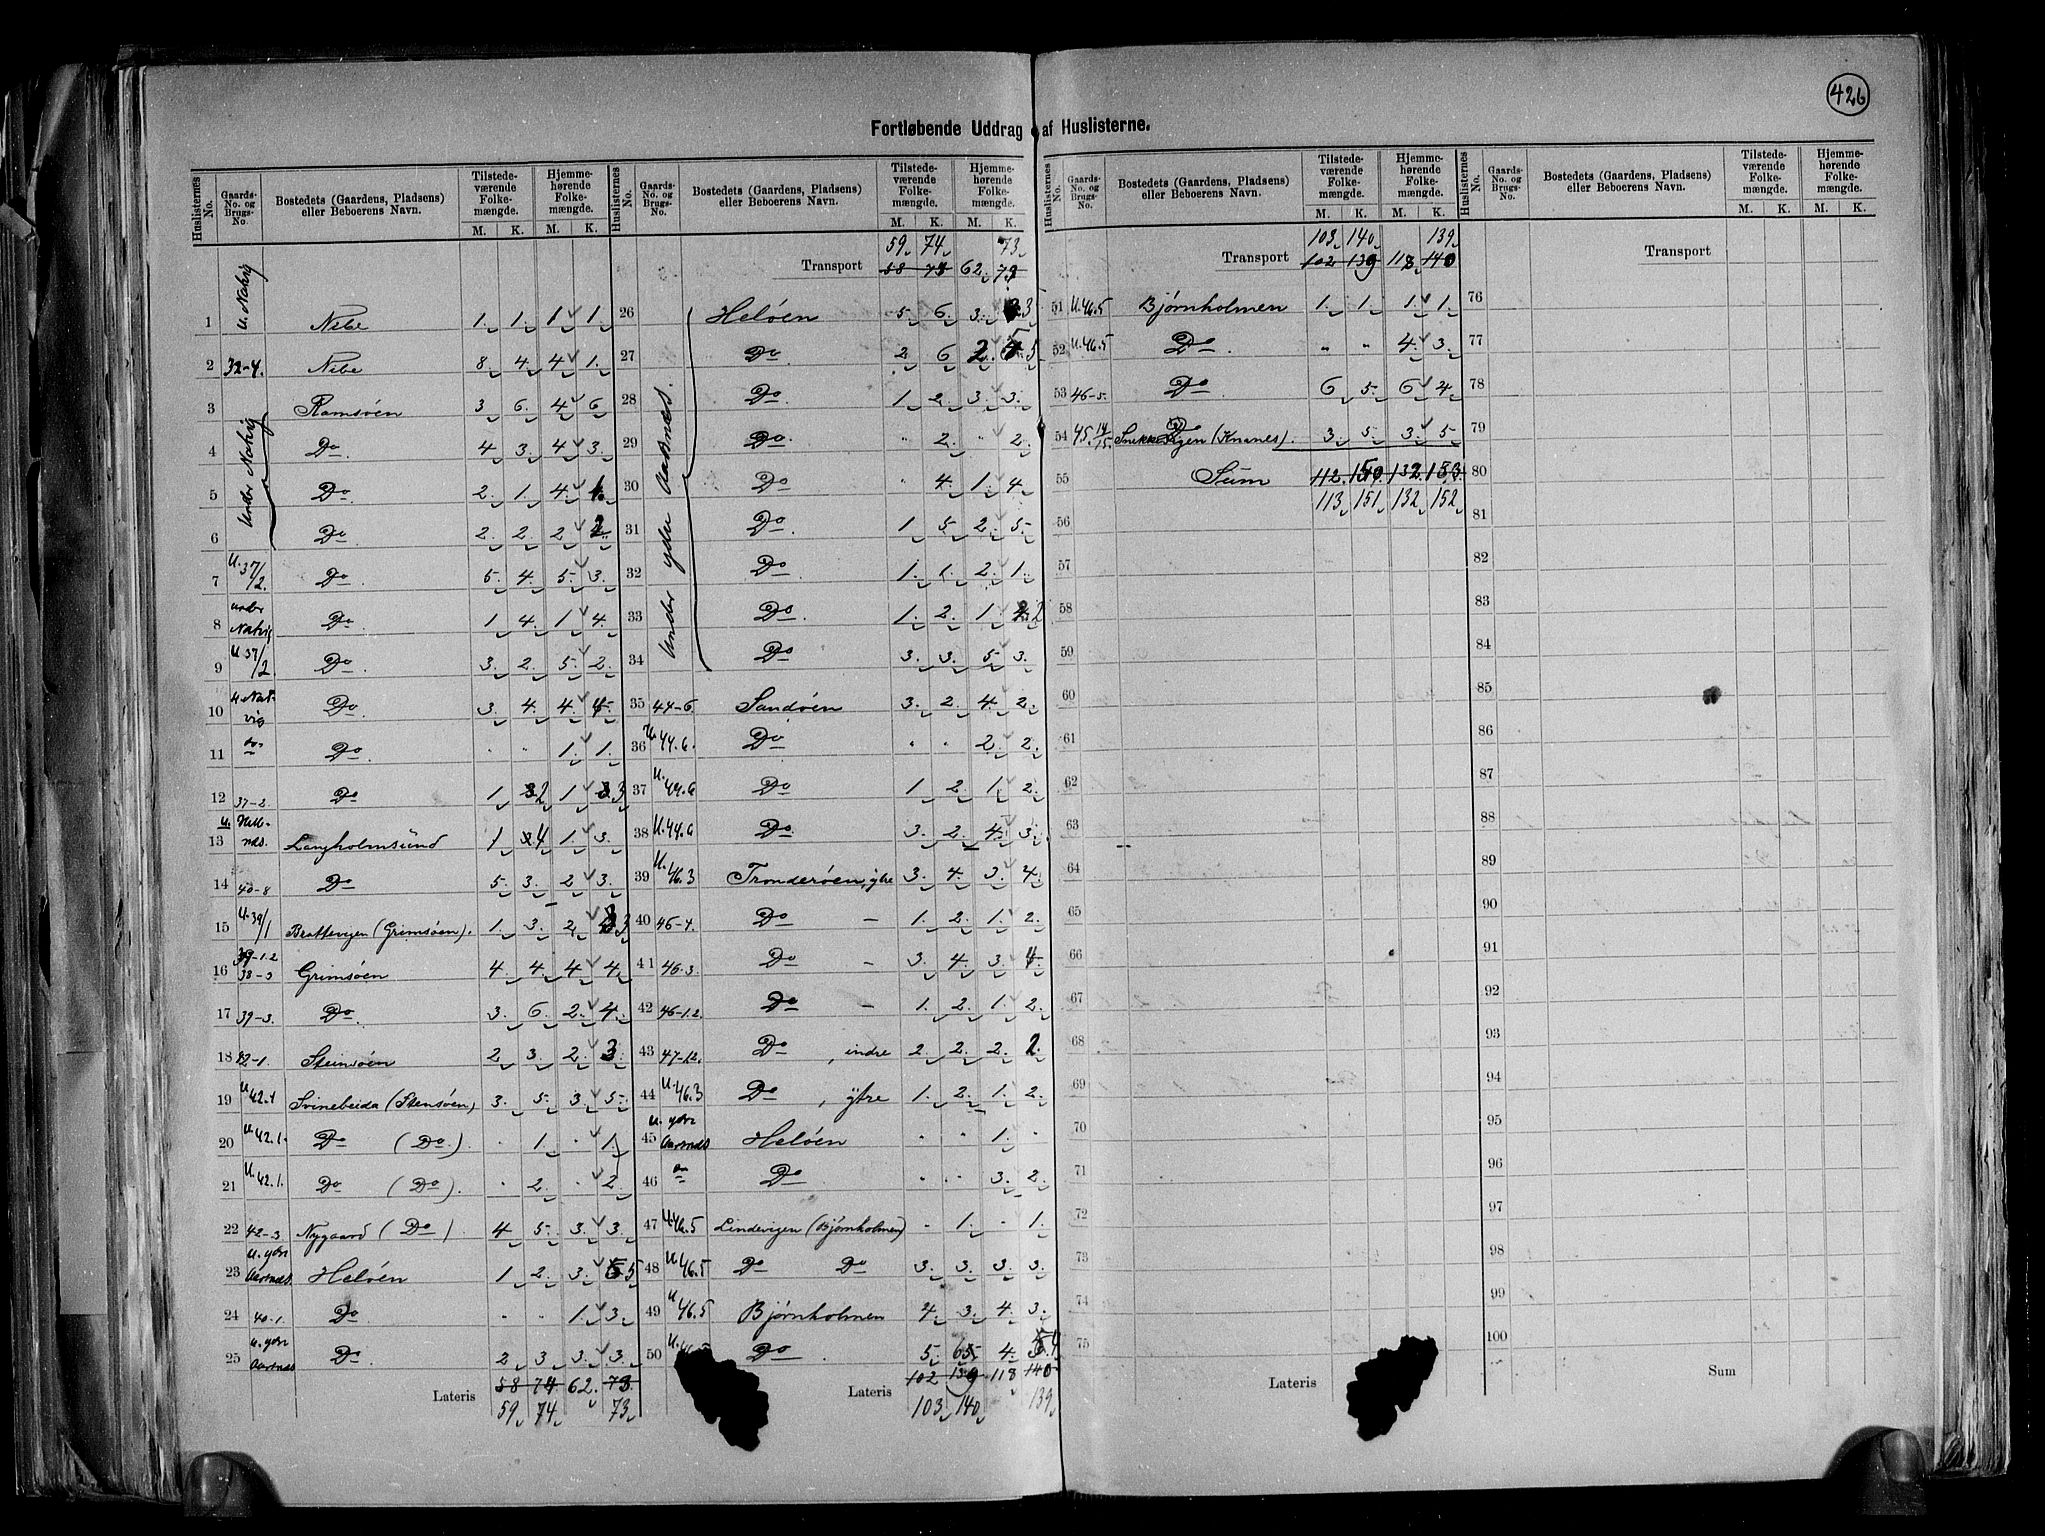 426
Fortløbende Uddrag af Huslisterne.
Huslisternes No. | Gaards-No. og Brugs-No. | Bostedets (Gaardens, Pladsens) eller Beboerens Navn. | Tilstedeværende Folkemængde. M. K. | Hjemmehørende Folkemængde. M. K.
1 u. Natvig Nebe 1. 1. 1 1.
2 32-4. Nebe 8. 4. 4 1.
3 Under Natvig Ramsøen 3 6. 4 6
4 Do. 4 3. 4 3.
5 Do. 2. 1. 4 1.
6 Do. 2. 2. 2 2
7 U.37/2. Do. 5. 4. 5. 3.
8 under Natvig Do. 1 4. 1 4.
9 U 37/2 Do. 3. 2. 5. 2.
10 u Natvig Do. 3. 4. 4. 4
11 do. Do. " " 1. 1.
12 37-2. Do 1. 2 1. 3
13 u. Langholmsund 1 4 1. 3.
14 40-8 Do 5. 3. 2 3.
15 U.39/1 Brattevigen (Grimsøen). 1. 3. 2 3
16 39-1.2 38-3 Grimsøen 4. 4. 4 4.
17 39-3. Do. 3. 6. 2. 4.
18 82-1. Steinsøen 2 3. 2. 3.
19 U 42.1 Svinebeida (Stensøen) 3. 5. 3. 5.
20 U 42.1. Do (Do.) " 1. " 1.
21 U.42.1. Do (Do). " 2. " 2.
22 42-3 Nygaard (Do) 4 5. 3. 3.
23 u. ydre Aarsnes. Heløen 1 2. 3. 5
24 40-1. Do " " 1. 3.
25 u. ydre Aarsnes Do. 2 3 3. 3.
Lateris 58 74. 62. 73.
59, 74, 73,
59, 74, 73,
Transport 58 73 62. 73
26 Under ydre Aarsnes. Heløen 5. 6. 3. 3
27 Do 2. 6 2. 5
28 Do. 1 2. 3. 3.
29 Do. " 2. " 2.
30 Do " 4. 1. 4.
31 Do. 1. 5. 2. 5.
32 Do. 1. 1. 2. 1.
33 Do. 1. 2. 1. 2
34 Do 3. 3. 5. 3.
35 44-6. Sandøen 3. 2. 4. 2.
36 U 44.6. Do " " 2. 2.
37 U. 44.6 Do 1. 2. 1. 2.
38 U.44.6 Do. 3. 2. 4. 3.
39 U. 46.3 Tronderøen, ytre 3. 4. 3. 4.
40 46-4. Do – 1. 2. 1. 2.
41 46.3. Do – 3. 4. 3. 4.
42 46-1.2. Do – 1. 2. 1. 2.
43 47-12. Do , indre 2. 2. 2. 2.
44 U.46.3 Do , ytre 1. 2. 1. 2.
45 u. ydre Aarsnes Heløen " " 1. "
46 Do " " 3. 2.
47 U.46.5 Lindevigen (Bjørnholmen) " 1. " 1.
48 U 46.5 Do Do 3. 3. 3. 3.
49 U 46.5 Bjørnholmen 4. 3. 4. 3.
50 U. Do. 5. 5. 4. 4
Lateris 102 139 118 140
103, 140, 139,
103, 140, 139,
Transport 102 139 118 140
51 U.46.5 Bjørnholmen 1. 1. 1. 1.
52 U.46.5 Do. " " 4. 3.
53 46-5. Do 6 5. 6 4.
54 45. 14/15. (Knanes). 3. 5. 3. 5.
55 Sum 112. 150. 132. 153.
56 113, 151, 132, 152,
57
58
59
60
61
62
63
64
65
66
67
68
69
70
71
72
73
74
75
Lateris
Transport
76
77
78
79
80
81
82
83
84
85
86
87
88
89
90
91
92
93
94
95
96
97
98
99
100
Sum